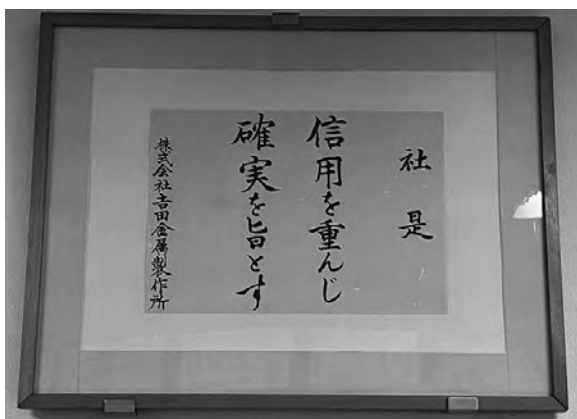 社是
信用を重んじ
確実を旨とす
株式会社吉田金属製作所